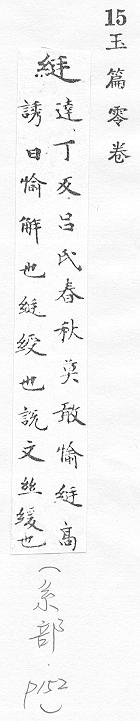 15玉篇零卷
綎
達丁反呂氏春秋莫敢愉綎高
誘曰愉解也綎綬也說文絲緩也
(系部.p152)